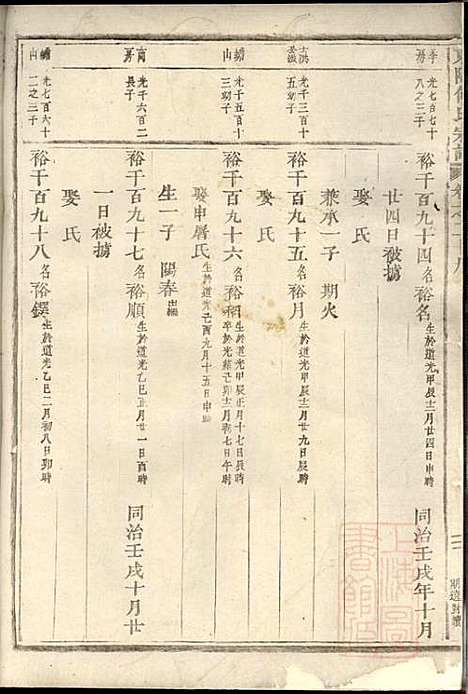 李房
光七百七十八之三子
裕千百九十四名裕名生於道光甲辰十二月廿四日申時
同治壬戌年十月
廿四日被擄
娶氏
兼承一子期火
洪
光千三百
五朔子
裕千百九十五名裕月生於道光甲辰十二月廿九日辰時
娶氏
蟠山
光千五百
三朔子
裕千百九十六名裕相生於道光甲辰正月十七日辰時
卒於光緒己卯十二月初七日午時
娶申屠氏生於道光己酉九月十五日申時
生一子陽春出繼
南房
光千六百二
長子
裕千百九十七名裕順生於道光乙巳正月廿一日酉時
同治壬戌十月廿
一日被擄
娶氏
蟠山
光七百六十二之三子
裕千百九十八名裕鐸生於道光乙巳二月初八日卯時
上海圖書館